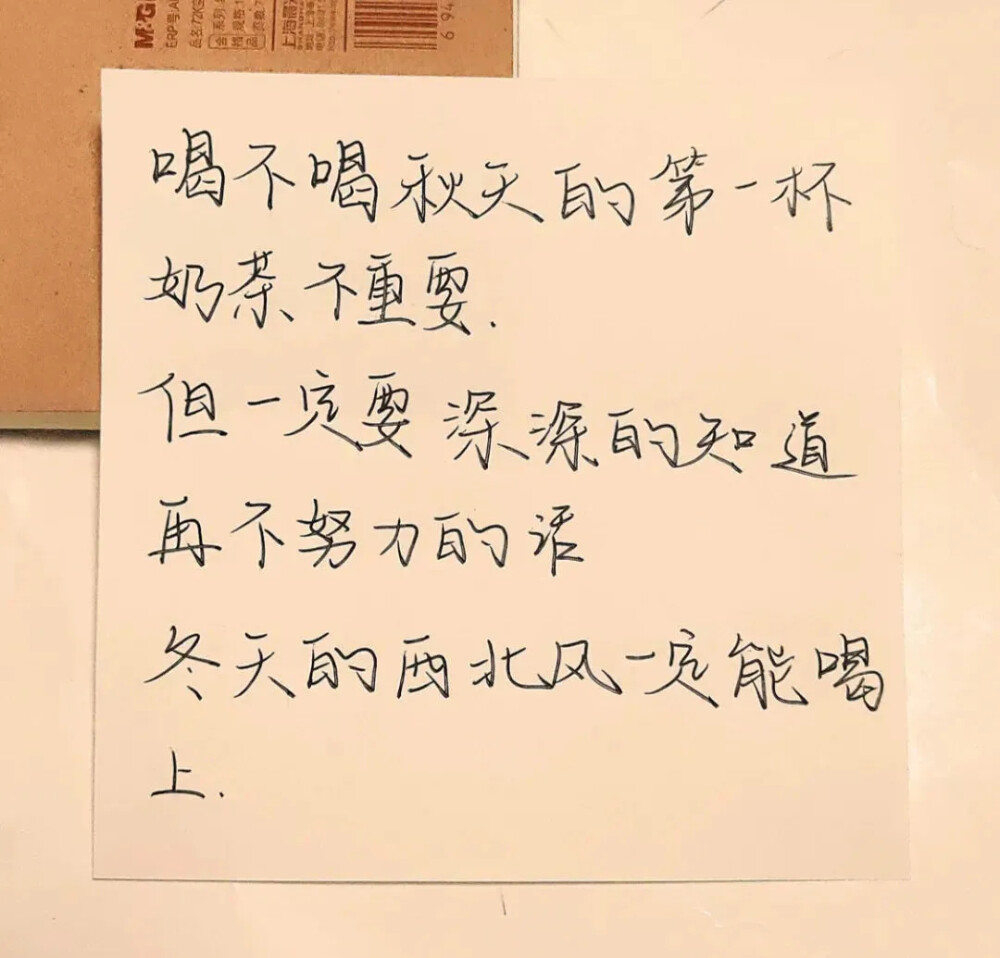 M&G
喝不喝秋天的第一杯
奶茶不重要.
但一定要深深的知道
再不努力的话
冬天的西北风一定能喝
上.